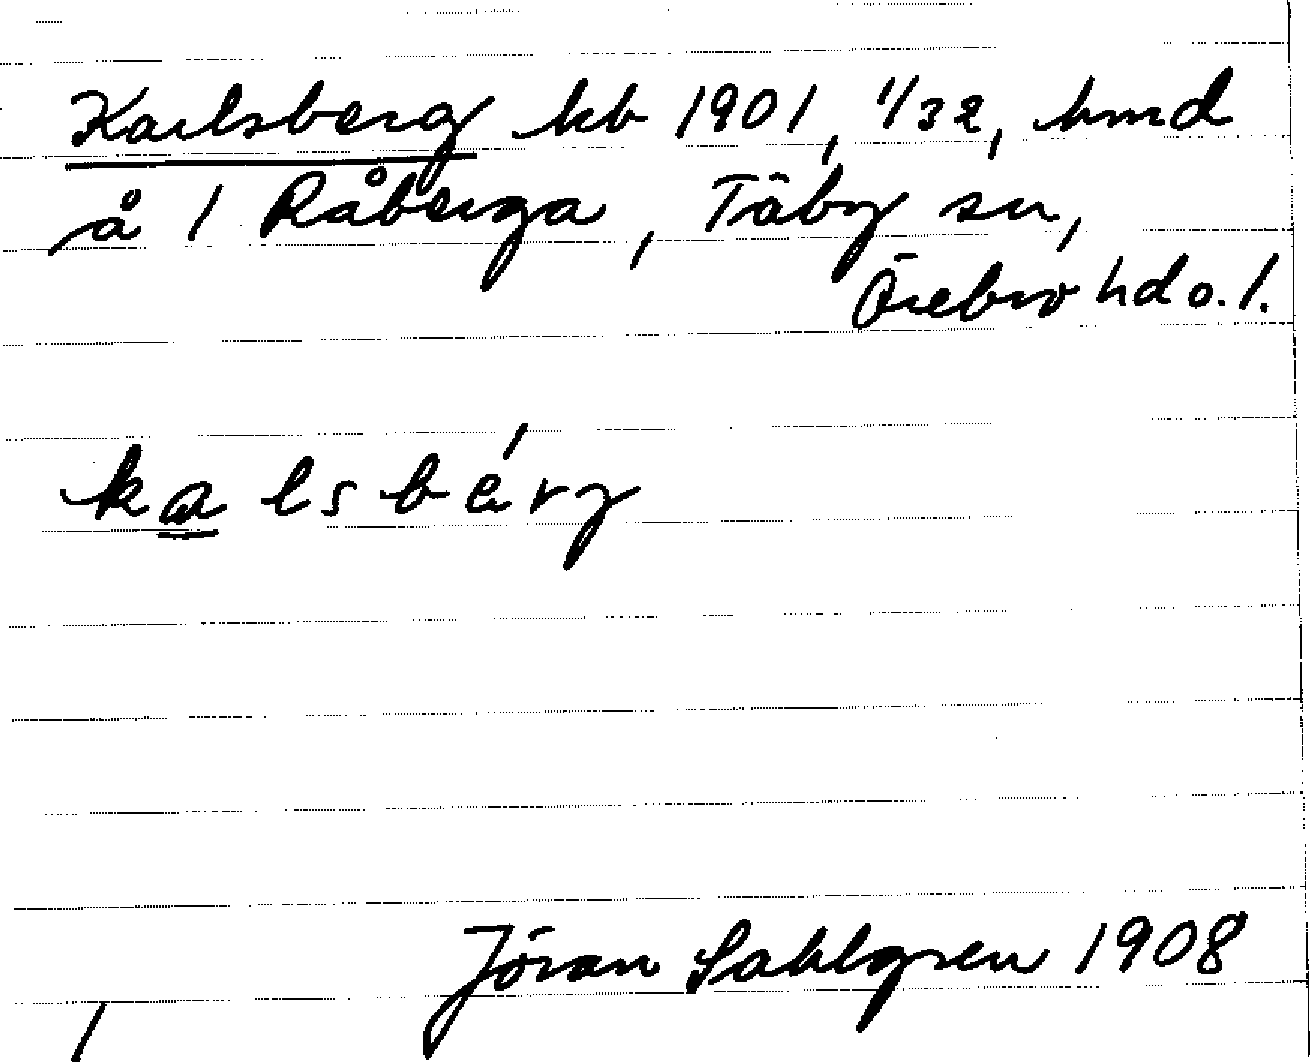 Karlsberg kb 1901, 1/32, hmd
å 1 Råberga, Täby sn,
Örebro hd o. l.
kalsbérg
Jöran Sahlgren 1908